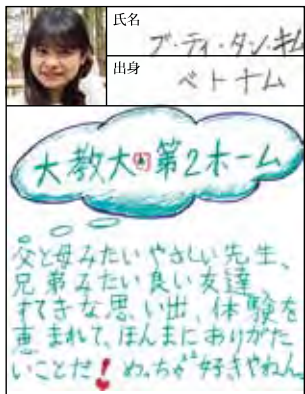 氏名
ブ・ティ・タン・キム
出身
ベトナム
大教大 第2ホーム
父と母みたいやさしい先生、
兄弟みたい良い友達
すてきな思い出、体験を
恵まれて、ほんまにありがた
いことだ！めっちゃ好きやねん。